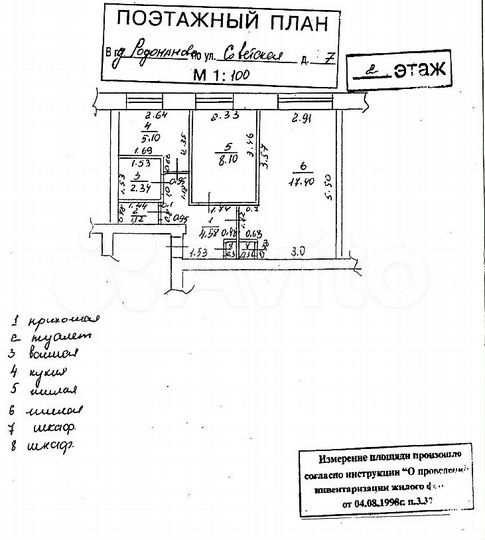 ПОЭТАЖНЫЙ ПЛАН
В г. Родниково по ул. Советской д. 7
М 1: 100
2 этаж
2.64 2.33 2.91
4
5.10
2.35
5
8.10
3.46 3.57
6
17.40
5.50
1.69
1.53
3
2.34
1.53
0.95
1.44
2
0.95
1
4.58
1.53
0.48 0.63
3.0
1 прихожая
2 туалет
3 ванная
4 кухня
5 жилая
6 жилая
7 шкаф
8 шкаф
Avito
Измерение площади произошло
согласно инструкции "О проведении
инвентаризации жилого
от 04.08.1998г. п.3.37